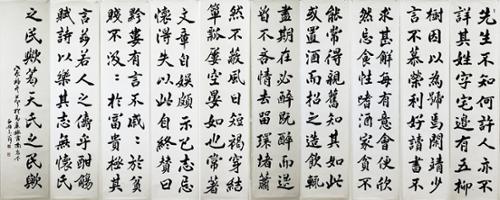 先生不知何許人亦不
詳其姓字宅邊有五柳
樹因以為號焉閑靖少
言不慕榮利好讀書不
求甚解每有意會便欣
然忘食性嗜酒家貧不
能常得親舊知其如此
或置酒而招之造飲輒
盡期在必醉既醉而退
曾不吝情去留環堵蕭
然不蔽風日短褐穿結
簞瓢屢空晏如也常著
文章自娛頗示己志忘
懷得失以此自終贊曰
黔婁有言不戚〻於貧
賤不汲〻於富貴極其
言茲若人之儔乎酣觴
賦詩以樂其志無懷氏
之民歟葛天氏之民歟